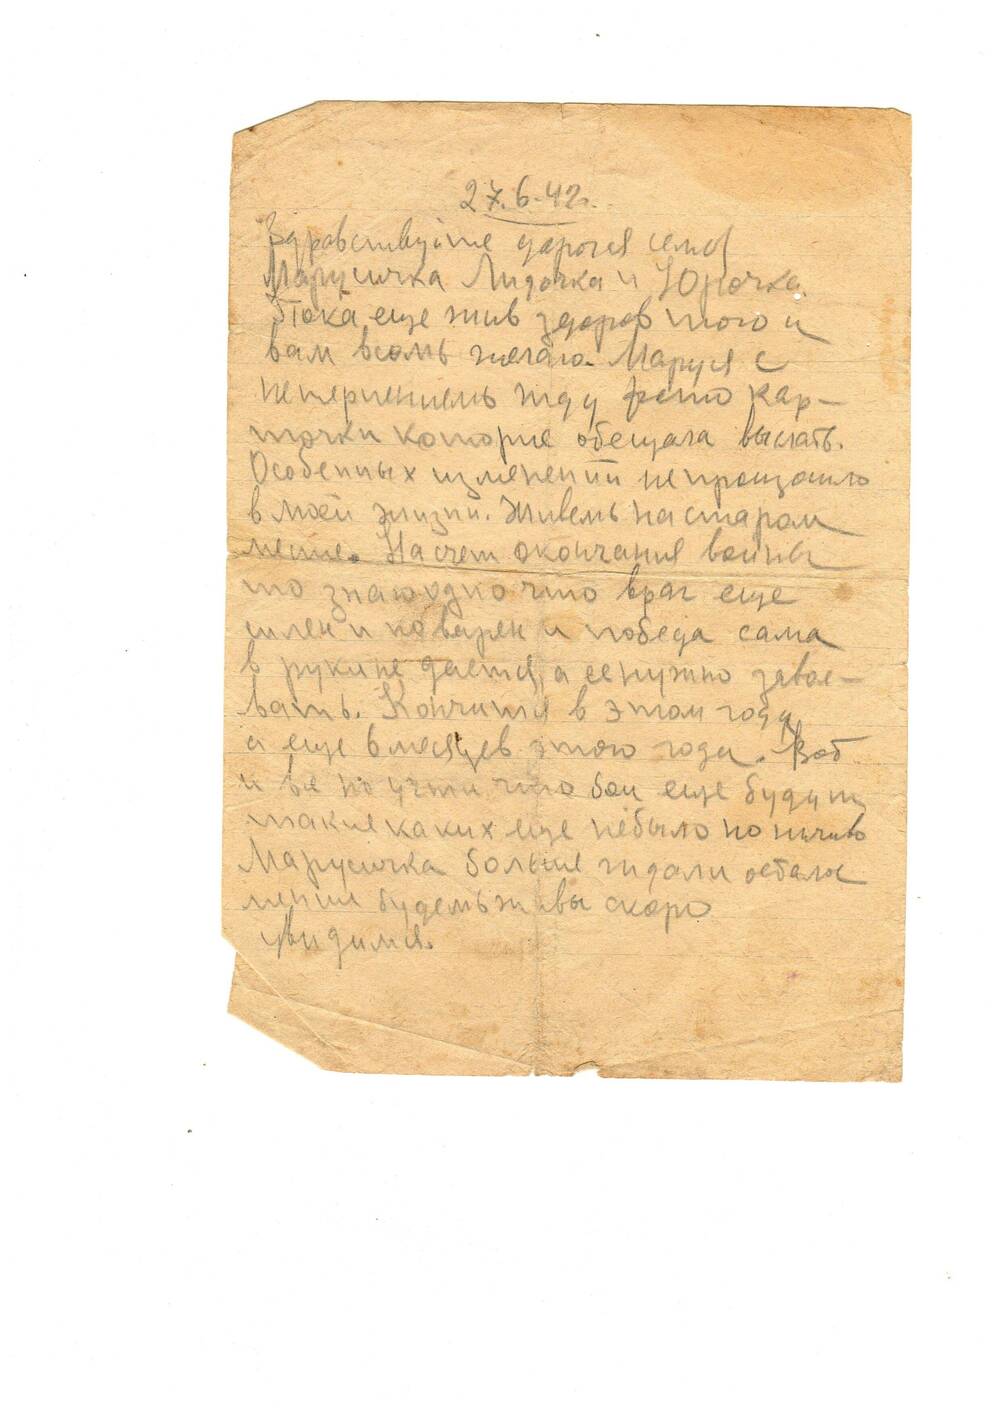 27.6.42г.
Здравствуйте дорогия семя
Марусичка Лидочка и Юрочка.
Пока еще жив здоров того и
вам всемь желаю. Маруся с
нетерпениемь жду фото кар-
точки которые обещала выслать.
Особенных изменений не произошло
в моей жизни. Живемь на старом
месте. Насчет окончания войны
то знаю одно что враг еще
силен и коварен и победа сама
в руки не дается, а ее нужно завое-
вать. Кончится в этом году
а еще 6 месяцев этого года. Вот
и но учти что бои еще будут
такие каких еще небыло но ничиво
Марусичка больше ждали осталос
мение будемь живы скоро
увидимся.